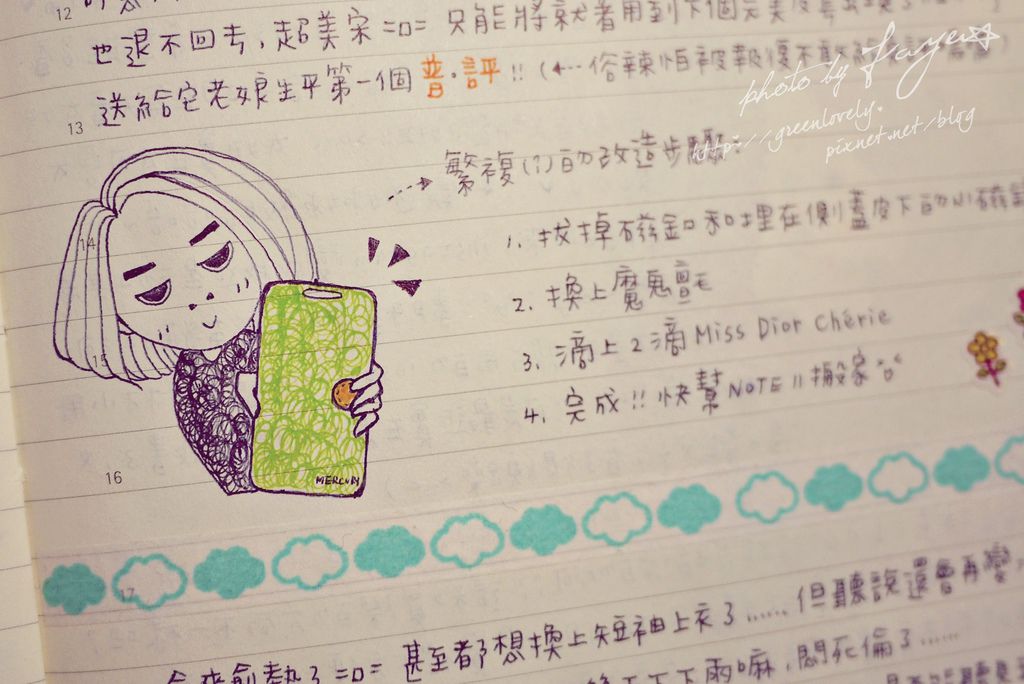 12
也退不回去,超美宋=口= 只能將就著用到下個
送給它老娘生平第一個 普·評!! (←俗辣怕被報復不敢
13
photo by faye☆
http://greenlovely.
pixnet.net/blog
繁複(?)的改造步驟:
14
1. 拔掉磁釦和埋在側蓋皮下的小磁
2. 換上魔鬼氈
15
3. 滴上2滴 Miss Dior Chérie
4. 完成!! 快幫NOTE II 搬家
MERCURY
16
17
甚至都想換上短袖上衣了......但聽說還會再變,
下雨嘛,悶死倫了......